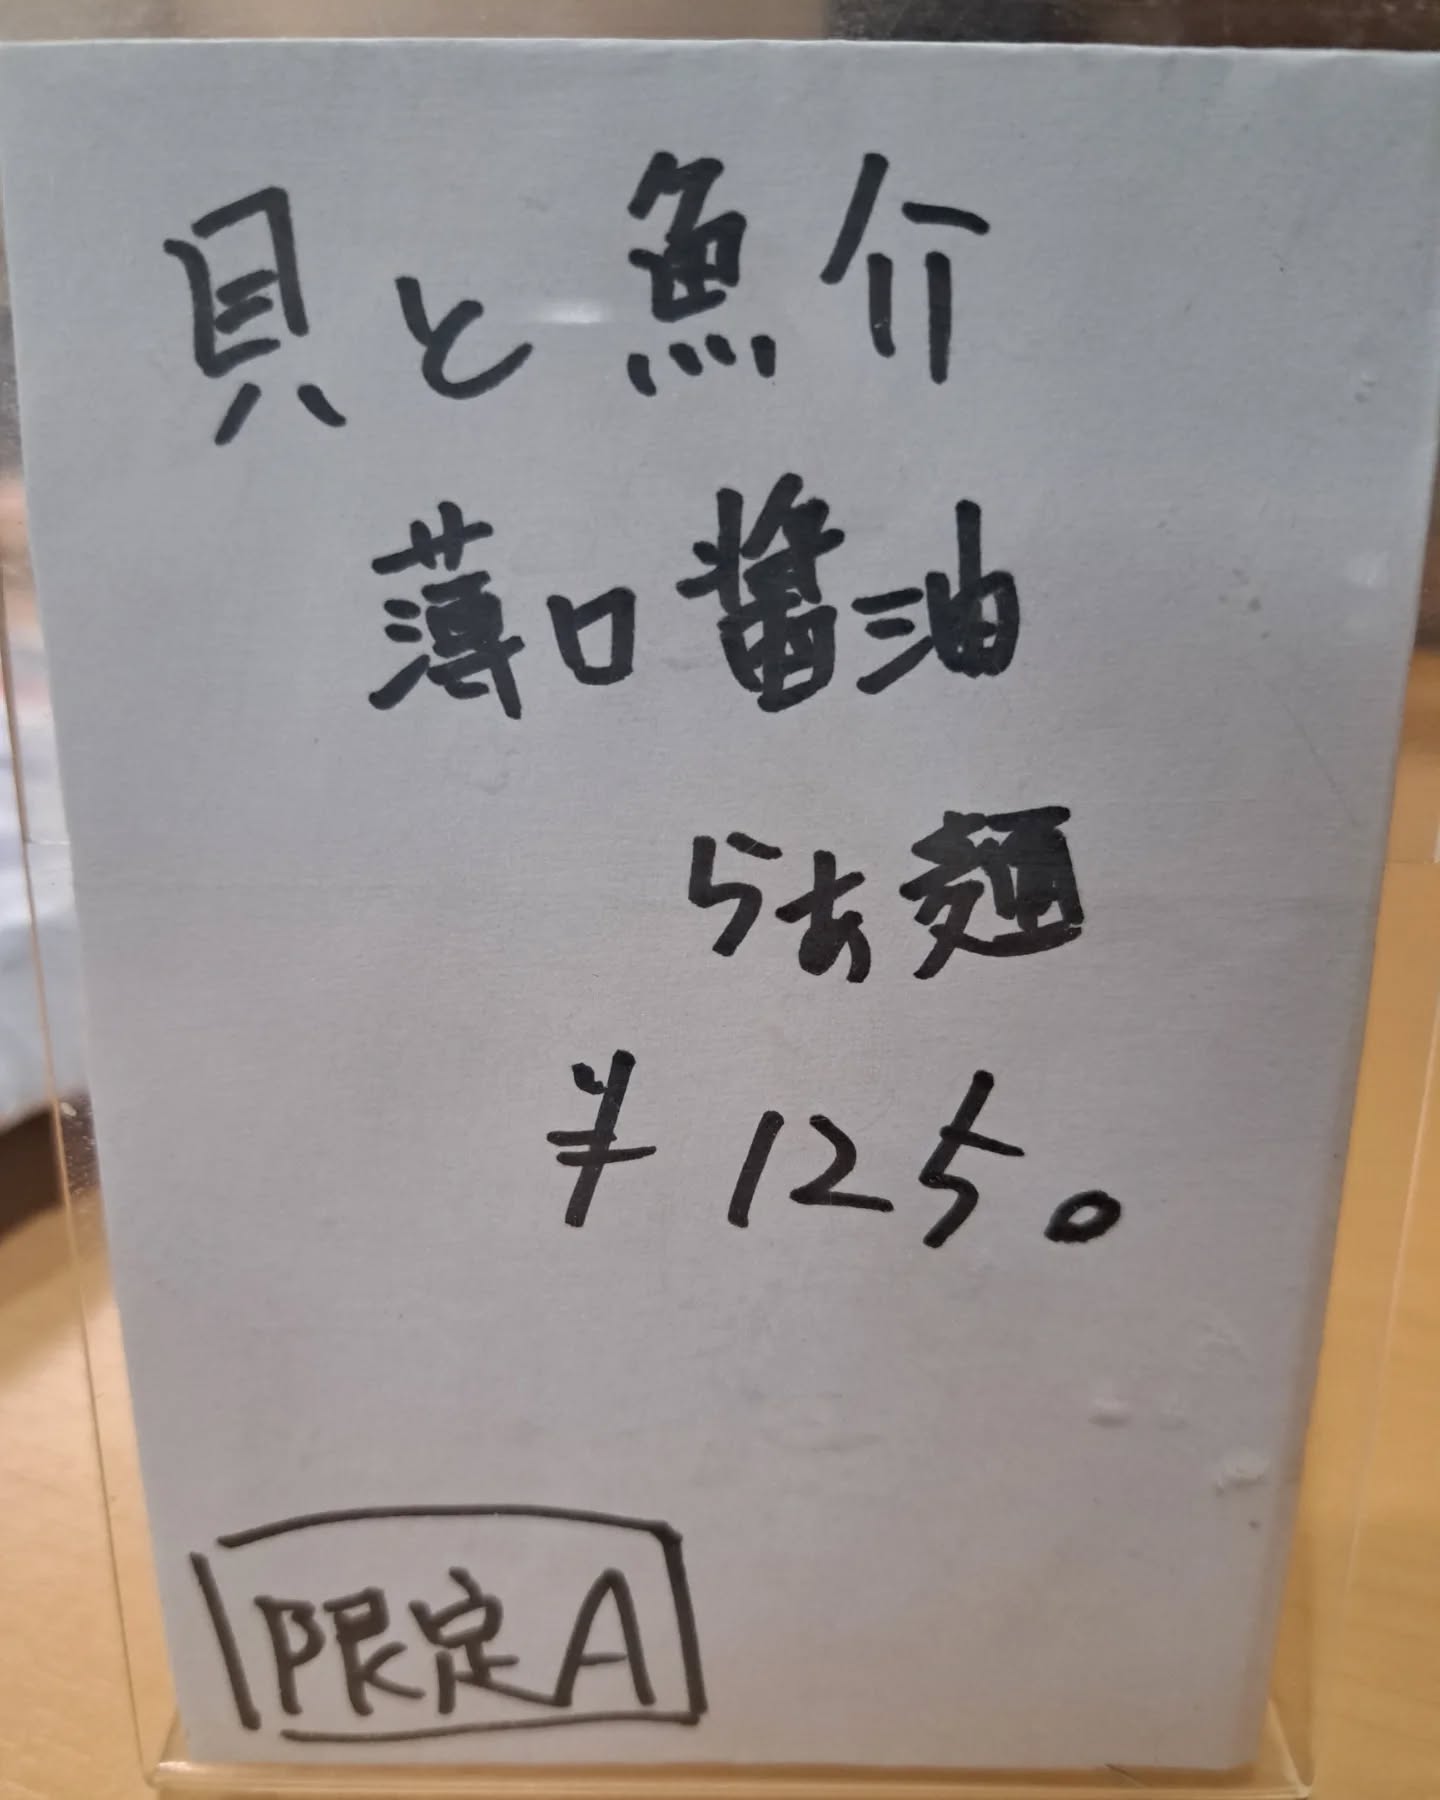 貝と魚介
薄口醤油
らぁ麺
¥1250
限定A